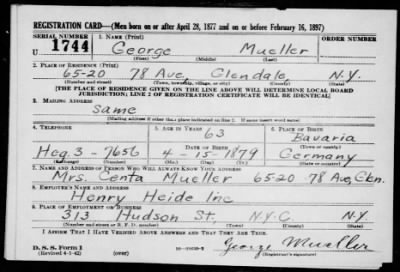 REGISTRATION CARD—(Men born on or after April 28, 1877 and on or before February 16, 1897)
SERIAL NUMBER 1. NAME (Print) ORDER NUMBER
U 1744 George Mueller
(First) (Middle) (Last)
2. PLACE OF RESIDENCE (Print)
65-20 78 Ave, Glendale, N.Y.
(Number and street) (Town, township, village, or city) (County) (State)
[THE PLACE OF RESIDENCE GIVEN ON THE LINE ABOVE WILL DETERMINE LOCAL BOARD
JURISDICTION; LINE 2 OF REGISTRATION CERTIFICATE WILL BE IDENTICAL]
3. MAILING ADDRESS
Same
[Mailing address if other than place indicated on line 2. If same insert word same]
4. TELEPHONE 5. AGE IN YEARS 6. PLACE OF BIRTH
63 Bavaria
DATE OF BIRTH (Town or county)
Heg 3-7656 4-15-1879 Germany
(Exchange) (Number) (Mo.) (Day) (Yr.) (State or country)
7. NAME AND ADDRESS OF PERSON WHO WILL ALWAYS KNOW YOUR ADDRESS
Mrs. Centa Mueller 65-20 78 Ave, Glen.
8. EMPLOYER'S NAME AND ADDRESS
Henry Heide Inc
9. PLACE OF EMPLOYMENT OR BUSINESS
313 Hudson St, N.Y.C N.Y.
(Number and street or R. F. D. number) (Town) (County) (State)
I AFFIRM THAT I HAVE VERIFIED ABOVE ANSWERS AND THAT THEY ARE TRUE.
D. S. S. Form 1
(Revised 4-1-42) (over) George Mueller
(Registrant's signature)